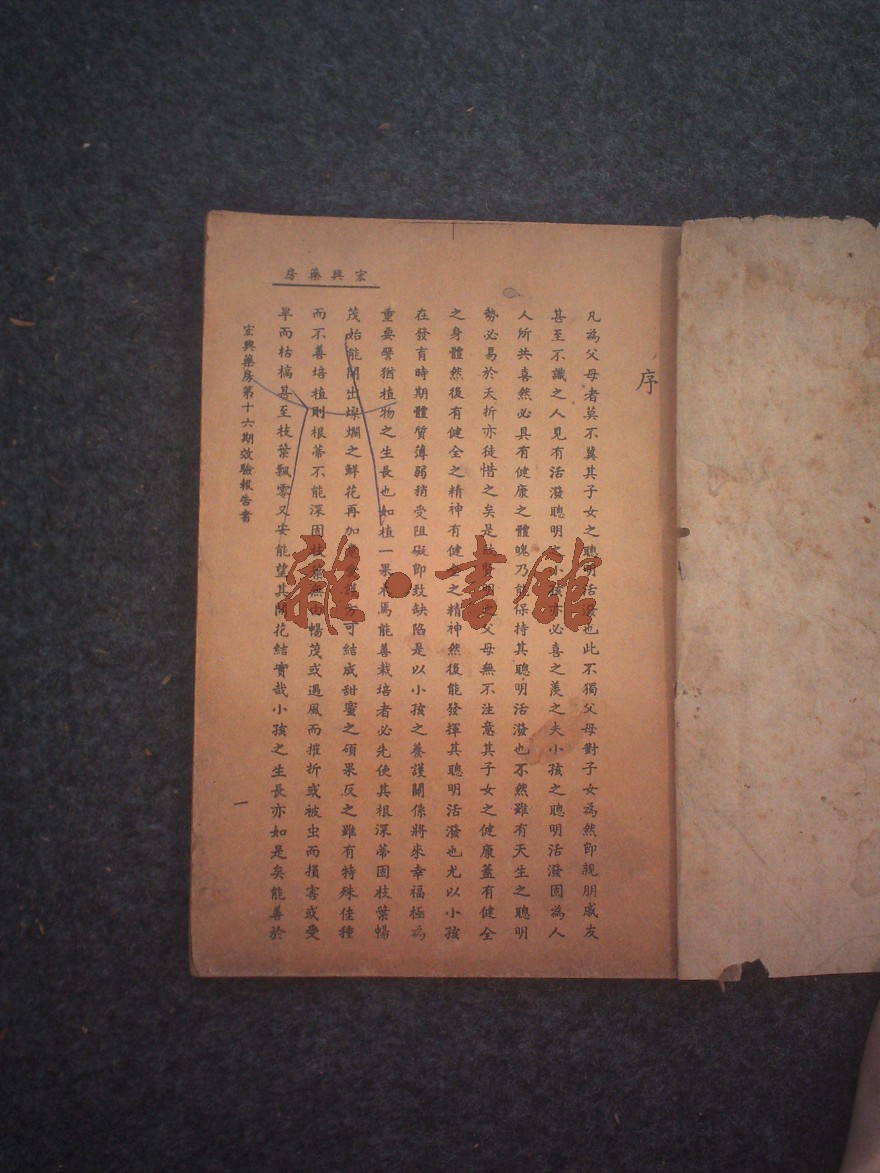 宏興藥房
序
凡為父母者莫不冀其子女之聰明活潑也此不獨父母對子女為然即親朋戚友
甚至不識之人見有活潑聰明之小孩亦必喜之羨之夫小孩之聰明活潑固為人
人所共喜然必具有健康之體魄乃能保持其聰明活潑也不然雖有天生之聰明
勢必易於夭折亦徒惜之矣是故賢明之父母無不注意其子女之健康蓋有健全
之身體然後有健全之精神有健全之精神然後能發揮其聰明活潑也尤以小孩
在發育時期體質薄弱稍受阻礙即致缺陷是以小孩之養護關係將來幸福極為
重要譬猶植物之生長也如植一果木焉能善栽培者必先使其根深蒂固枝葉暢
茂始能開出燦爛之鮮花再加方可結成甜蜜之碩果反之雖有特殊佳種
而不善培植則根蒂不能深固枝葉無由暢茂或遇風而摧折或被虫而損害或受
旱而枯槁甚至枝葉飄零又安能望其開花結實哉小孩之生長亦如是矣能善於
宏興藥房第十六期效驗報告書
一
雜·書館